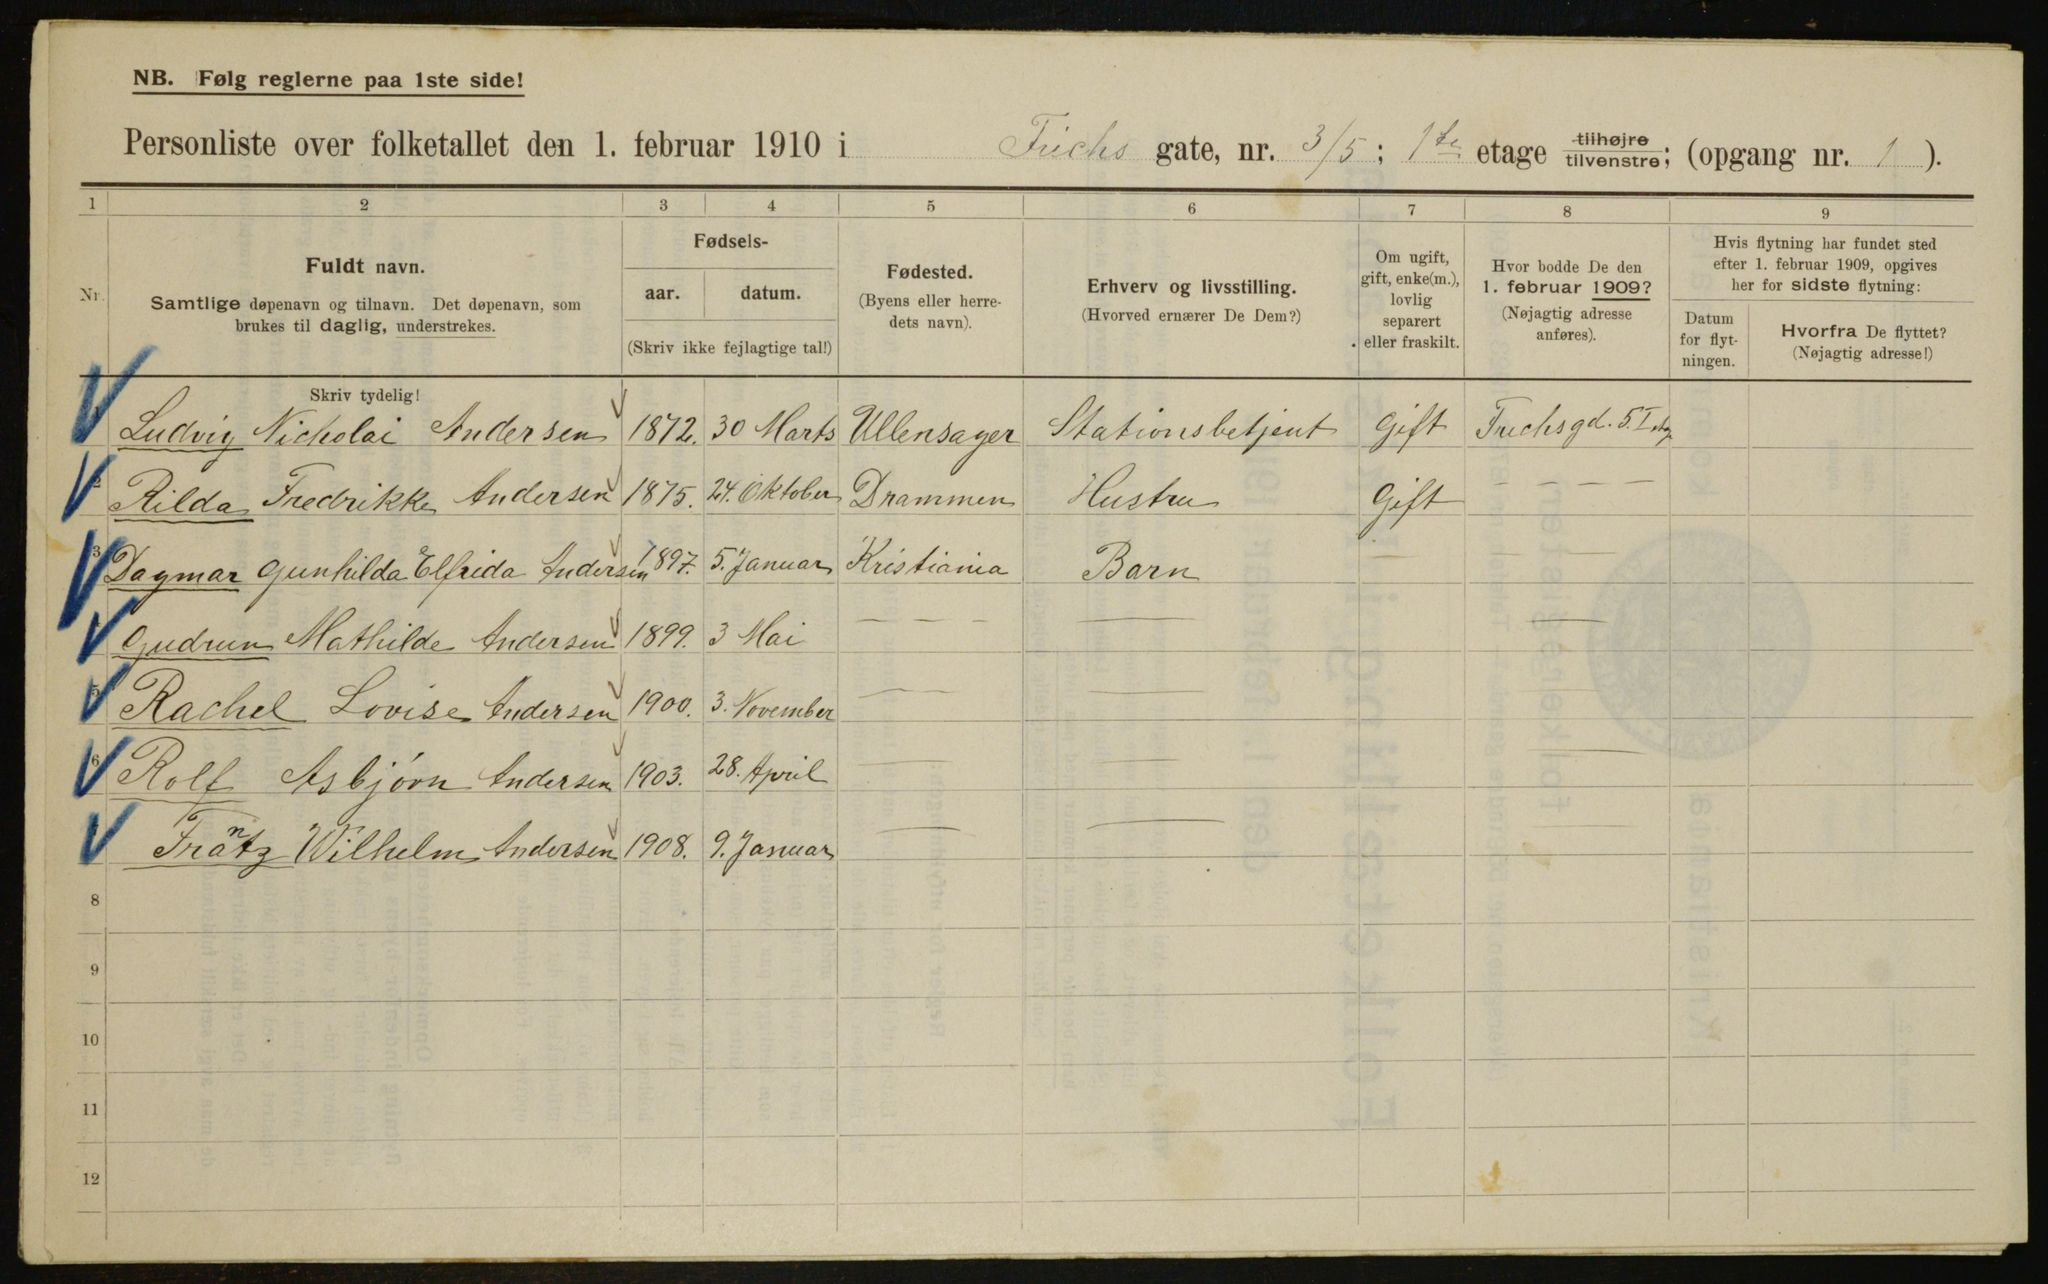 NB. Følg reglerne paa 1ste side!
Personliste over folketallet den 1. februar 1910 i Frichs gate, nr. 3/5; 1te etage tilhøjre tilvenstre; (opgang nr. 1).
1 2 3 4 5 6 7 8 9
Nr.
Fuldt navn.
Samtlige døpenavn og tilnavn. Det døpenavn, som
brukes til daglig, understrekes.
Skriv tydelig!
Fødsels-
aar. datum.
(Skriv ikke fejlagtige tal!)
Fødested.
(Byens eller herre-
dets navn).
Erhverv og livsstilling.
(Hvorved ernærer De Dem?)
Om ugift,
gift, enke(m.),
lovlig
separert
eller fraskilt.
Hvor bodde De den
1. februar 1909?
(Nøjagtig adresse
anføres).
Hvis flytning har fundet sted
efter 1. februar 1909, opgives
her for sidste flytning:
Datum
for flyt-
ningen.
Hvorfra De flyttet?
(Nøjagtig adresse!)
1 Ludvig Nicholai Andersen 1872. 30 Marts Ullensager Stationsbetjent Gift Frichsgd. 5. I etg
2 Rilda Fredrikke Andersen 1875. 24. Oktober Drammen Hustru Gift – – – –
3 Dagmar Gunhilda Elfrida Andersen 1897. 5. Januar Kristiania Barn — — — —
4 Gudrun Mathilde Andersen 1899. 3 Mai – – – – — —
5 Rachel Lovise Andersen 1900. 3. November — — — —
6 Rolf Asbjørn Andersen 1903. 28. April — — — —
Frantz Wilhelm Andersen 1908. 9. Januar — — —
8
9
10
11
12